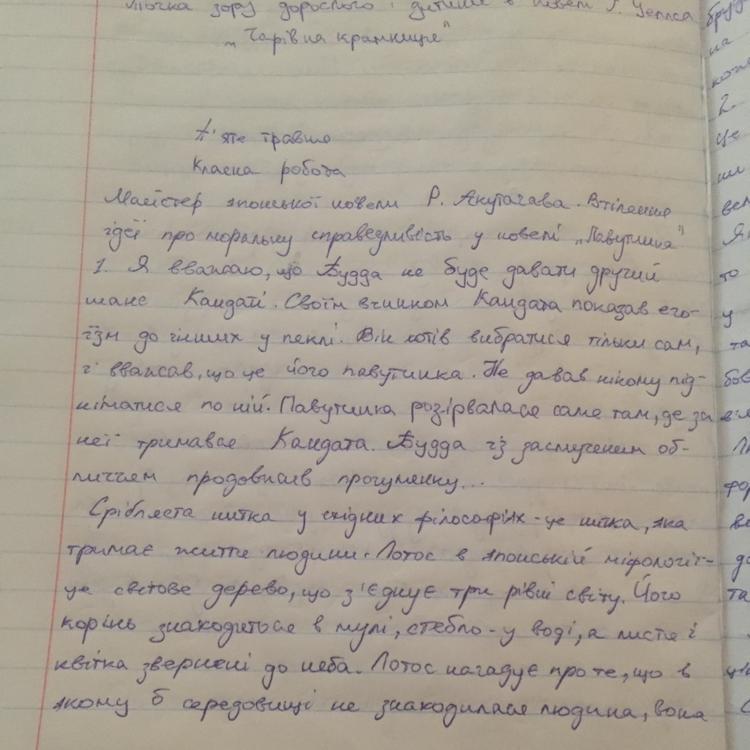 Точка зору дорослого і дитини в новелі Г. Уеллса
„Чарівна крамниця"
П'яте травня
Класна робота
Майстер японської новели Р. Акутагава. Втілення
ідеї про моральну справедливість у новелі „Павутинка"
1. Я вважаю, що Будда не буде давати другий
шанс Кандаті. Своїм вчинком Кандата показав его-
їзм до інших у пеклі. Він хотів вибратися тільки сам,
і вважав, що це його павутинка. Не давав нікому під-
німатися по ній. Павутинка розірвалася саме там, де за
неї тримався Кандата. Будда із засмученим об-
личчям продовжив прогулянку...
Срібляста нитка у східних філософіях - це нитка, яка
тримає життя людини. Лотос в японській міфології -
це світове дерево, що з'єднує три рівні світу. Його
корінь знаходиться в мулі, стебло - у воді, а листя і
квітка звернені до неба. Лотос нагадує про те, що в
якому б середовищі не знаходилася людина, вона
на
2.
це
ни
Як
то
у
та
бов
фор
та